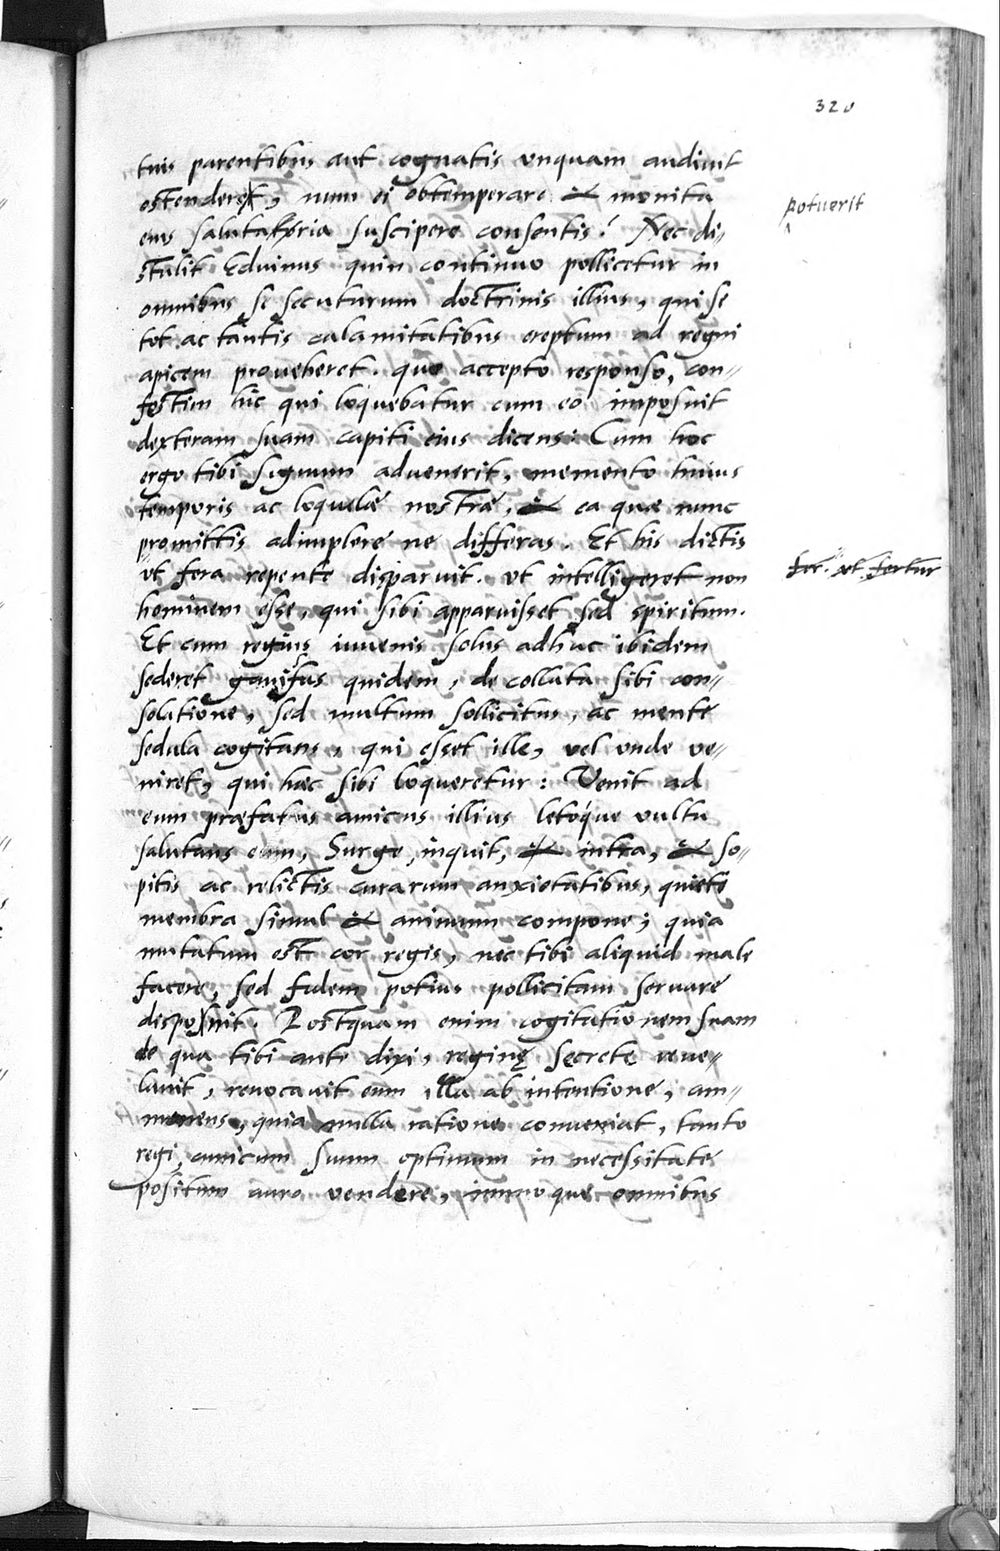 320
tuis parentibus aut cognatis unquam audiuit
ostenderet, num ei obtemperare & monita
potuerit
eius salutaria suscipere consentis? Nec di-
stulit Eduinus quin continuo pollicetur in
omnibus se secuturum doctrinis illius, qui se
tot ac tantis calamitatibus ereptum ad regni
apicem proveheret. quo accepto responso, con-
festim hic qui loquebatur cum eo imposuit
dexteram suam capiti eius dicens: Cum hoc
ergo tibi signum advenerit, memento huius
temporis ac loquelae nostrae, & ea quae nunc
promittis adimplere ne differas. Et his dictis
ut fera repente disparuit. ut intelligeret non
fer. ut fertur
hominem esse, qui sibi apparuisset sed spiritum.
Et cum regius iuvenis solus adhuc ibidem
sederet gavisus quidem, de collata sibi con-
solatione, sed multum sollicitus, ac mente
sedula cogitans, qui esset ille, vel unde ve-
niret, qui haec sibi loqueretur: Venit ad
eum praefatus amicus illius letoque vultu
salutans eum, Surge, inquit, & intra, & so-
pitis ac relictis curarum anxietatibus, quieti
membra simul & animum compone; quia
mutatum est cor regis, nec tibi aliquid male
facere, sed fidem potius pollicitam servare
disposuit. Postquam enim cogitationem suam
de qua tibi ante dixi, reginę secrete reve-
lavit, revocavit eum illa ab intentione, am-
monens, quia nulla ratione conveniat, tanto
regi, amicum suum optimum in necessitate
positum auro vendere, immoque omnibus